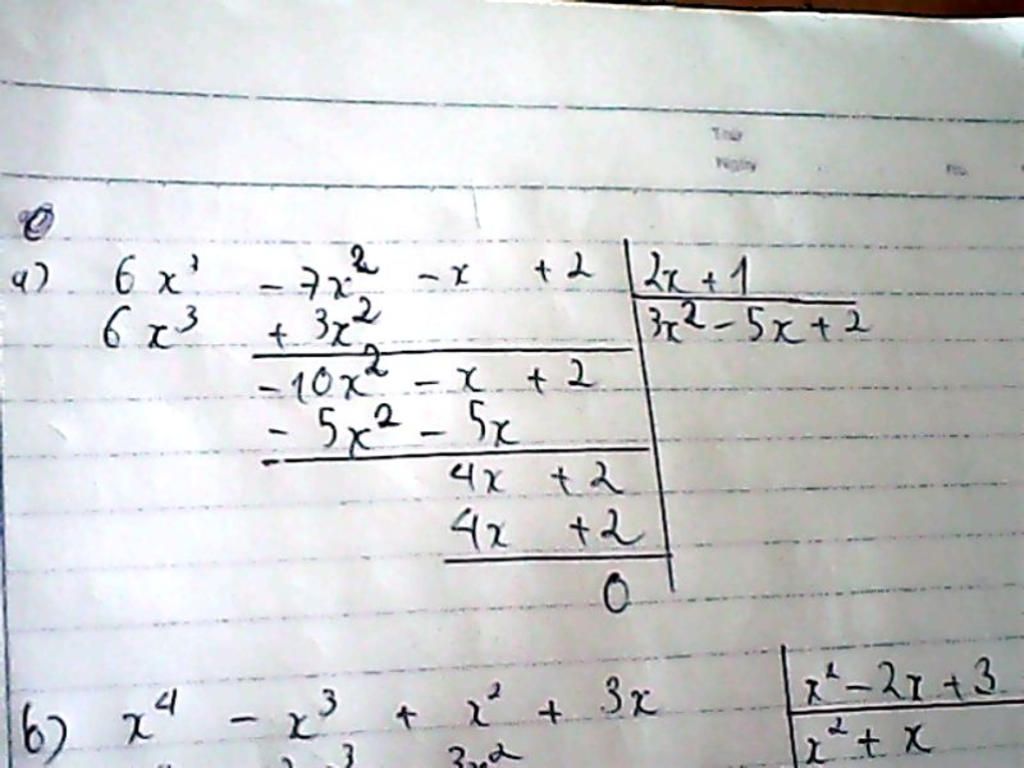 Thứ
Ngày No.
a) 6x³ - 7x² - x + 2 | 2x + 1
6x³ + 3x² | 3x² - 5x + 2
-10x² - x + 2
- 5x² - 5x
4x + 2
4x + 2
0
b) x⁴ - x³ + x² + 3x | x² - 2x + 3
x² + x
3x²